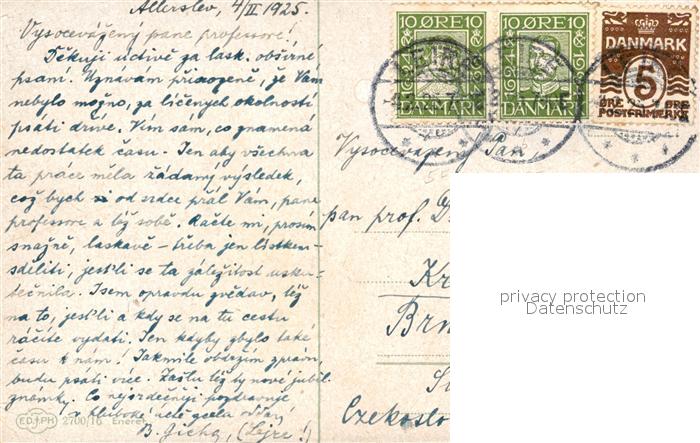 Allerslev, 4/II 1925.
Vysocevážený pane professore!
Děkuji uctivě za lask. obšírné
psaní. Uznávám přirozeně, že Vám
nebylo možno, za líčených okolností
psáti dříve. Vím sám, co znamená
nedostatek času. Jen aby všechna
ta práce měla žádaný výsledek,
což bych si od srdce přál Vám, pane
professore a též sobě. Račte mi, prosím
snažně, laskavě – třeba jen lístkem –
sděliti, jestli se ta záležitost usku-
tečnila. Jsem opravdu zvědav, též
na to, jestli a kdy se na tu cestu
ráčíte vydati. Jen kdyby zbylo také
času k nám! Jakmile obdržím zprávu,
budu psáti více. Zašlu též ty nové jubil.
známky. Co nejsrdečněji pozdravuje
v hluboké úctě zcela oddaný
B. (Lejre!)
10 ØRE 10
1624 1924
DANMARK
10 ØRE 10
1624 1924
DANMARK
DANMARK
5
ØRE ØRE
POSTFRIMÆRKE
Vysocevážený Pán,
pan prof. D
Kr
Brn
Czekoslo
privacy protection
Datenschutz
ED. PH
2700/16 Eneret